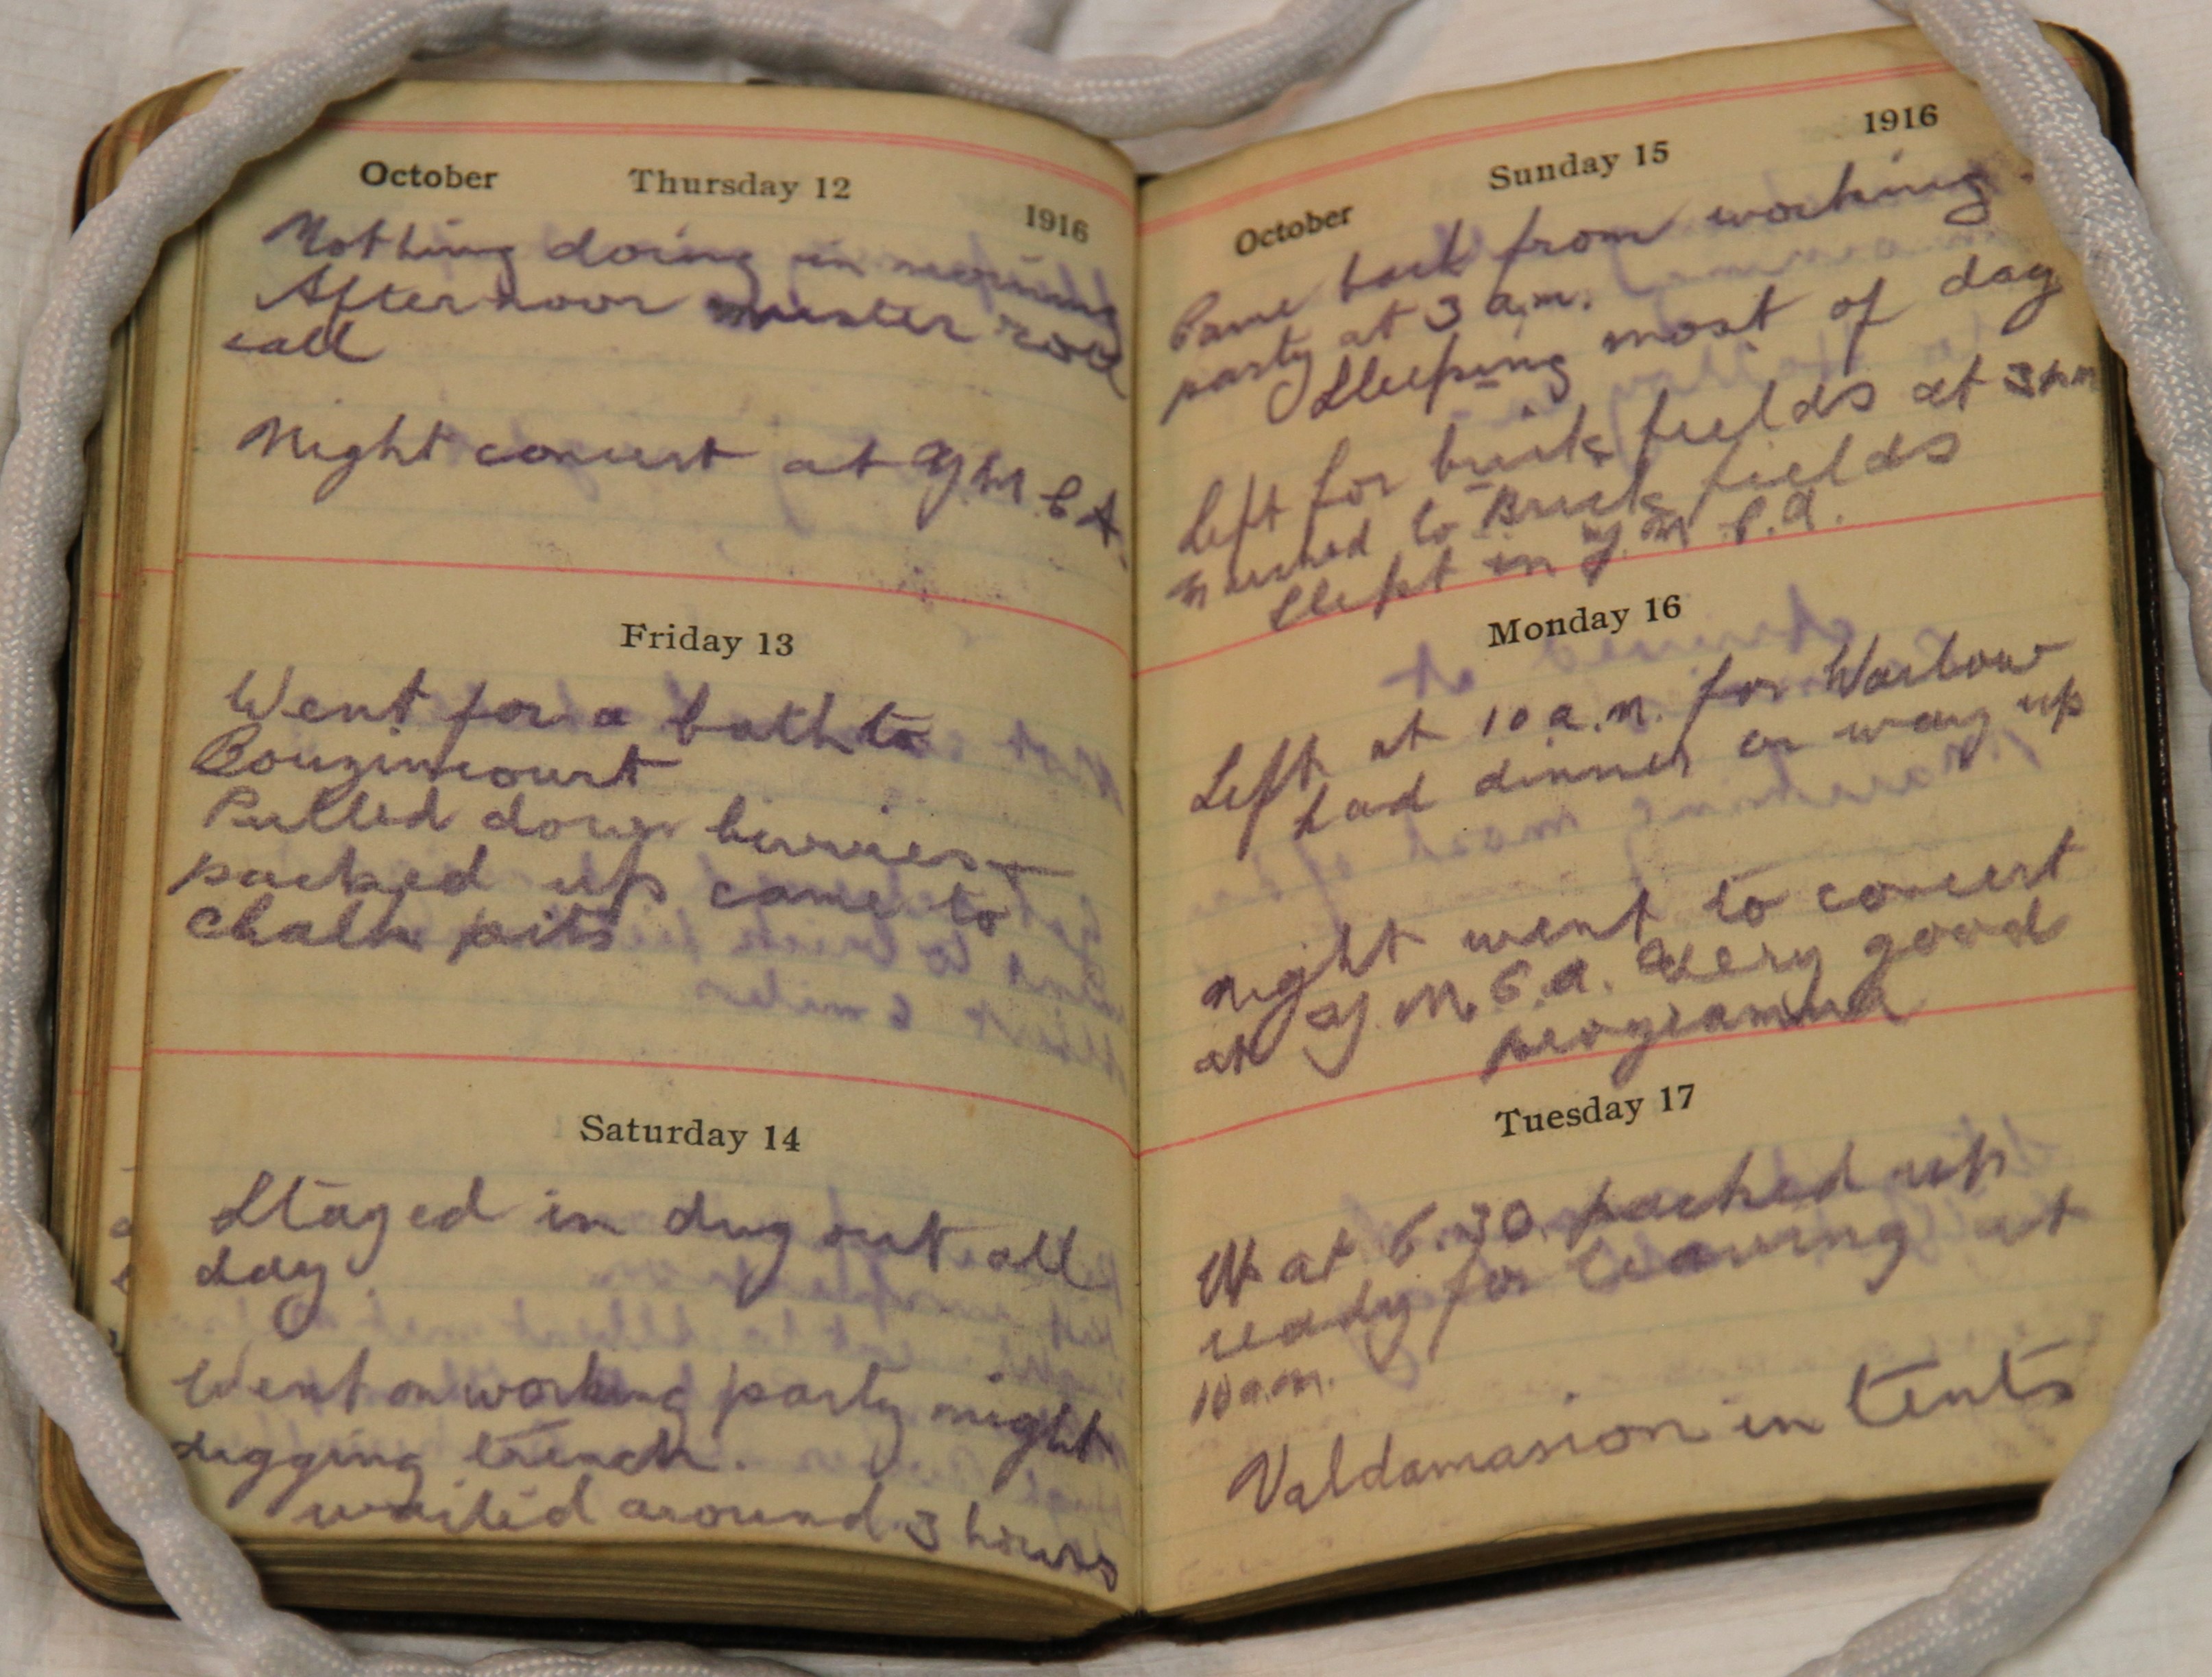 October Thursday 12 1916
Nothing doing in morning
Afternoon muster roll
call
Night concert at Y.M.C.A.
Friday 13
Went for a bath to
Bouzincourt
Pulled down bivvies
packed up came to
Chalk pits
Saturday 14
Stayed in dug out all
day.
Went on working party night
digging trench.
waited around 3 hours
October Sunday 15 1916
Came back from working
party at 3 a.m.
Sleeping most of day
Left for brick fields at 3 pm
Marched to Brick fields
Slept in Y.M.C.A.
Monday 16
Left at 10 a.m. for Warlow
had dinner on way up
Night went to concert
at Y.M.C.A. Very good
programme
Tuesday 17
Up at 6.30 packed up
ready for leaving at
10 a.m.
Valdamasion in tents